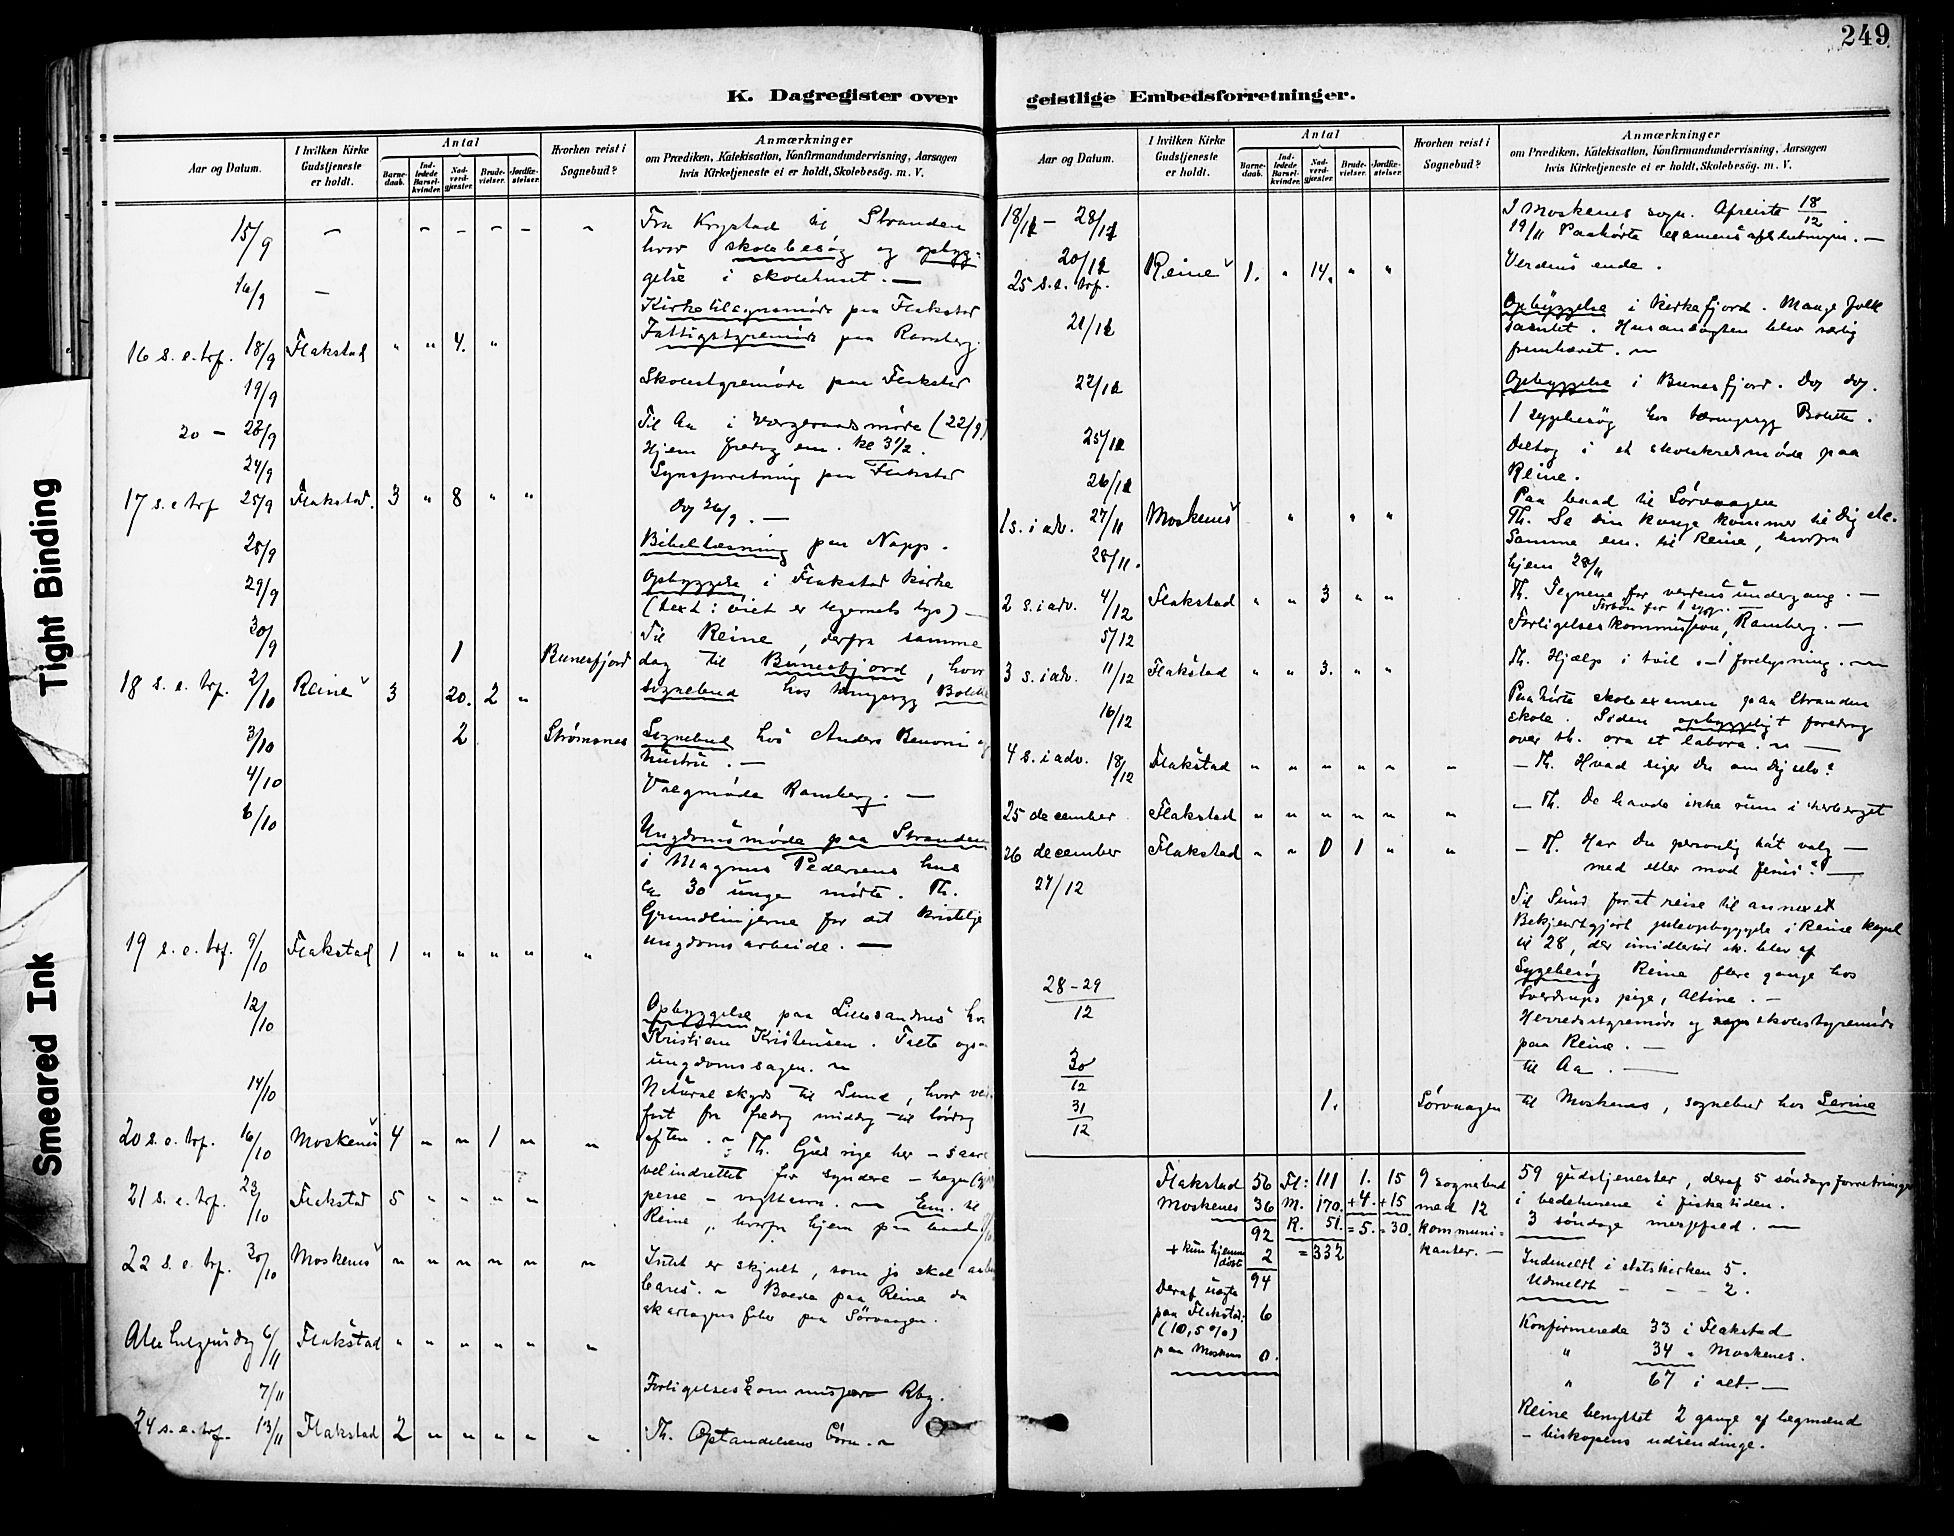 249
K. Dagregister over
geistlige Embedsforretninger.
Aar og Datum.
I hvilken Kirke
Gudstjeneste
er holdt.
Antal
Barne-
daab.
Ind-
ledede
Barsel-
kvinder.
Nad-
verd-
gjester.
Brude-
vielser.
Jordfæ-
stelser.
Hvorhen reist i
Sognebud?
Anmærkninger
om Prædiken, Katekisation, Konfirmandundervisning, Aarsagen
hvis Kirketjeneste ei er holdt, Skolebesøg. m. V.
15/9 Fra Krystad til Stranden
hvor skolebesøg og opbyg-
gelse i skolehuset. —
16/9 —
Kirketilsynsmøde paa Flakstad
Fattigstyremøde paa Ramberg.
16 s. e. trf. 18/9 Flakstad " " 4. "
19/9 Skolestyremøde paa Flakstad
20 - 23/9 Til Aa i Værgeraadsmøde (22/9)
Hjem fredag em. kl 3½.
24/9 Synsforretning paa Flakstad
17 s. e trf 25/9 Flakstad. 3 " 8 " "
Og 26/9. —
28/9 Bibellæsning paa Napp.
29/9 Opbyggelse i Flakstad kirke
(text: øiet er legemets lys) —
30/9 Til Reine, derfra samme
1 Bunesfjord dag til Bunesfjord, hvor
18 s. e. trf. 2/10 Reine 3 20. 2 " sognebud hos
3/10 2 Strømsnes Sognebud hos Anders Benoni og
hustru. —
4/10 Valgmøde Ramberg. —
6/10
Ungdomsmøde paa Stranden
i Magnus Pedersens hus
ca 30 unge mødte. Th.
Grundlinjerne for det kristelige
ungdomsarbeide. —
19 s. e. trf. 9/10 Flakstad 1 " " " " "
12/10 Opbyggelse paa Lillesandnes hos
Kristian Kristensen. Talte også
ungdomssagen. —
14/10 Naturalskyds til Sund, hvor veir-
fast fra fredag middag til lørdag
20 s. e. trf. 16/10 Moskenes 4 " " 1 " " aften. Th. Guds rige her - saare
vel indrettet for syndere -
21 s. e. trf. 23/10 Flakstad 5 " " " "
Em. til
Reine, hvorfra hjem paa baad
22 s. e. trf. 30/10 Moskenes " " " " " " Intet er skjult, som jo skal aaben-
bares. - Boede paa Reine da
skarlagensfeber paa Sørvaagen.
Alle helgensdag 6/11 Flakstad " " " " " "
7/11 Forligelseskommission Rbg.
24 s. e. trf. 13/11 Flakstad 2 " " " " " Th. Opstandelsens børn. —
Aar og Datum.
I hvilken Kirke
Gudstjeneste
er holdt.
Antal
Barne-
daab.
Ind-
ledede
Barsel-
kvinder.
Nad-
verd-
gjester.
Brude-
vielser.
Jordfæ-
stelser.
Hvorhen reist i
Sognebud?
Anmærkninger
om Prædiken, Katekisation, Konfirmandundervisning, Aarsagen
hvis Kirketjeneste ei er holdt, Skolebesög. m. V.
18/11 - 28/11 I Moskenes sogn. Afreiste 18/12
19/11 Paahørte examensafslutningen. —
20/11 Reine 1. " 14. " " Verdens ende.
25 s. e. trf.
21/11 Opbyggelse i Kirkefjord. Mange folk
samlet. Husandagten blev særlig
fremhævet. —
22/11 Opbyggelse i Bunesfjord. Do do.
1 sygebesøg hos Bolette.
25/11 Deltog i et skolekredsmøde paa
Reine.
26/11 Paa baad til Sørvaagen
1 s. i adv. 27/11 Moskenes " " " Th. Se din konge kommer til dig etc.
Samme em. til Reine, hvorfra
28/11. hjem 28/11
2 s. i adv. 4/12 Flakstad " " 3 " " Th. Tegnene for verdens undergang. —
5/12 Forligelseskommission, Ramberg. —
3 s. i adv. 11/12 Flakstad " " 3. " " Th. Hjælp i tvil - 1 forelysning. —
16/12 Paahørte skoleexamen paa Stranden
skole. Siden opbyggeligt foredrag
over th. ora et labora. —
4 s. i adv. 18/12 Flakstad " " " " " " — Th. Hvad siger du om dig selv?
25 december Flakstad " " " " " " — Th. De havde ikke rum i herberget
26 december Flakstad " " 0 1 " " — Th. Har du personlig tat valg —
med eller mod Jesus? —
27/12
Til Sund for at reise til annexet
Bekjendtgjort juleopbyggelse i Reine kapel
til 28, der imidlertid ik. blev af
28-29/12 Sygebesøg Reine flere gange hos
Sverdrups pige, Altine. —
Herredsstyremøde og skolestyremøde
paa Reine. —
30/12 til Aa. —
31/12 1. Sørvaagen til Moskenes, sognebud hos Serine
Flakstad 56 Fl: 111 1. 15 9 sognebud
Moskenes 36 M. 170. +4. +15 med 12
92 R. 51. =5. =30. kommuni-
+ kun hjemme 2 =332 kanter. —
døbt
94
Deraf uægte
paa Flakstad: 6
(10,5%)
paa Moskenes 0.
59 gudstjenester, deraf 5 søndagsforretninger
i bedehusene i fisketiden.
3 søndage messefred. —
Indmeldt i statskirken 5.
Udmeldt - - - 2.
Konfirmerede 33 i Flakstad
" 34 " Moskenes.
" 67 i alt. —
Reine benyttet 2 gange af lægmænd
— biskopens udsendinge.
Tight Binding
Smeared Ink